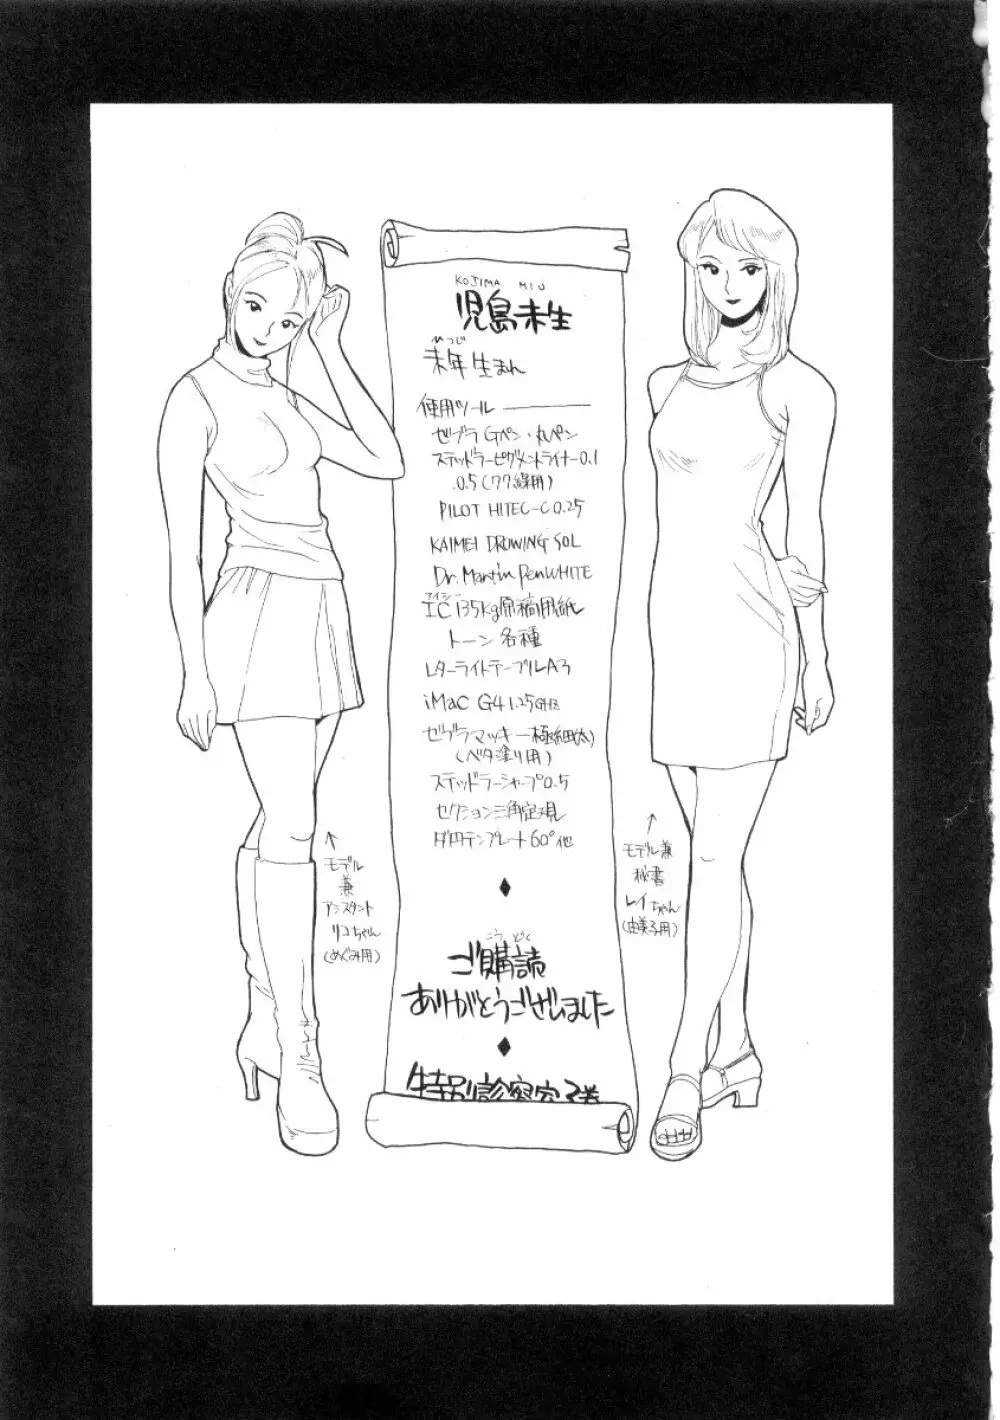 KOJIMA MIU
児島未生
ひつじ
未年生まれ
使用ツール
ゼブラ Gペン・丸ペン
ステッドラーピグメントライナー0.1
0.5(ワク線用)
PILOT HITEC-C 0.25
KAIMEI DROWING SOL
Dr. Martin PenWHITE
アイシー
IC 135kg原稿用紙
トーン 各種
LターライトテーブルA3
iMac G4 1.25GHz
ゼブラマッキー極細(太)
(ベタ塗り用)
ステッドラーシャープ0.5
セクション三角定規
ダ円テンプレート60°他
こうどく
ご購読
ありがとうございました
特別診察室
↑
モデル
兼
アシスタント
リコちゃん
(めぐみ用)
↑
モデル兼
秘書
レイちゃん
(由美子用)